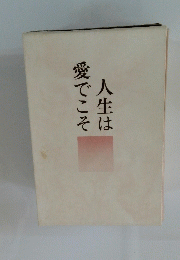 人生は
愛でこそ